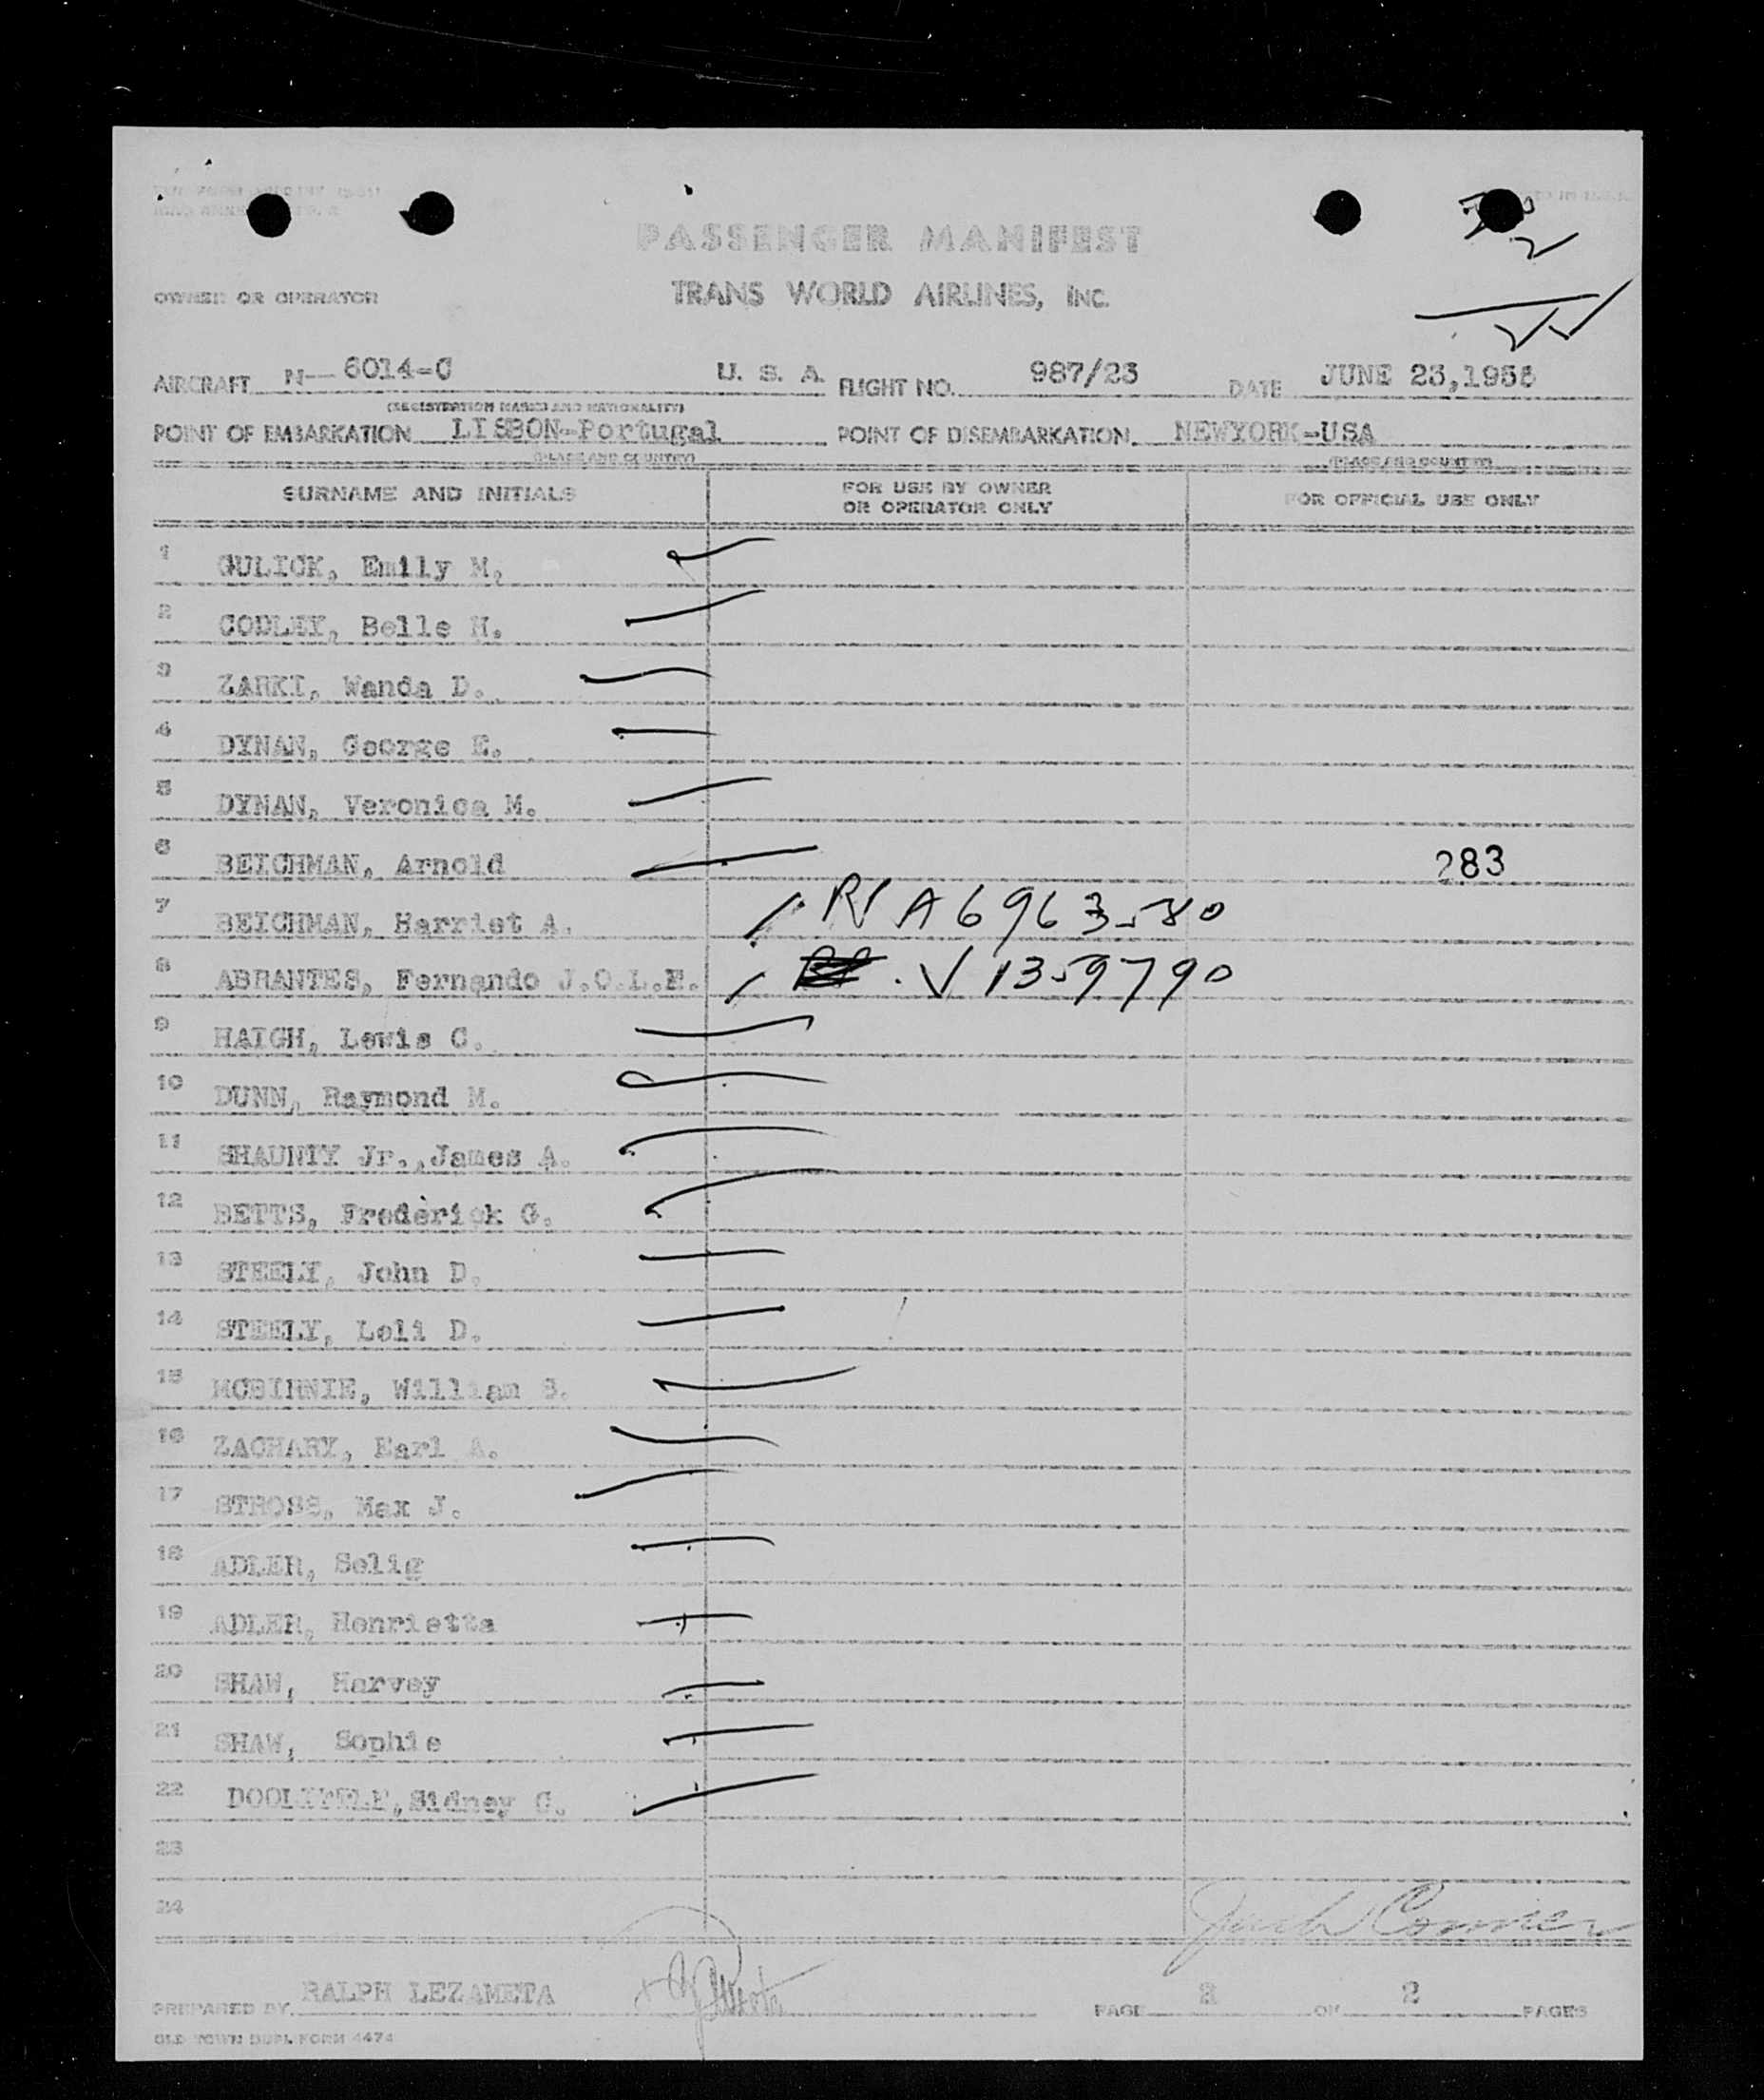 PASSENGER MANIFEST
OWNER OR OPERATOR TRANS WORLD AIRLINES, INC.
AIRCRAFT N-- 6014-C U. S. A. FLIGHT NO. 987/23 DATE JUNE 23,1955
(REGISTRATION MARKS AND NATIONALITY)
POINT OF EMBARKATION LISBON-Portugal POINT OF DISEMBARKATION NEWYORK-USA
(PLACE AND COUNTRY) (PLACE AND COUNTRY)
SURNAME AND INITIALS FOR USE BY OWNER OR OPERATOR ONLY FOR OFFICIAL USE ONLY
1 GULICK, Emily M.
2 Belle H.
3 ZARKI, Wanda D.
4 DYNAN, George E.
5 DYNAN, Veronica M.
6 BEICHMAN, Arnold 283
7 BEICHMAN, Harriet A. A6963580
8 ABRANTES, Fernando J.O.L.F. V 1359790
9 HAIGH, Lewis C.
10 DUNN, Raymond M.
11 SHAUNTY Jr.,James A.
12 BETTS, Frederick G.
13 STEELY, John D.
14 STEELY, Loli D.
15 MCBIRNIE, William S.
16 ZACHARY, Earl A.
17 STROSS, Max J.
18 ADLER, Selig
19 ADLER, Henrietta
20 SHAW, Harvey
21 SHAW, Sophie
22 DOOLITTLE,Sidney C.
23
24
PREPARED BY RALPH LEZAMETA PAGE 2 OF 2 PAGES
OLD TOWN DUPL FORM 4474